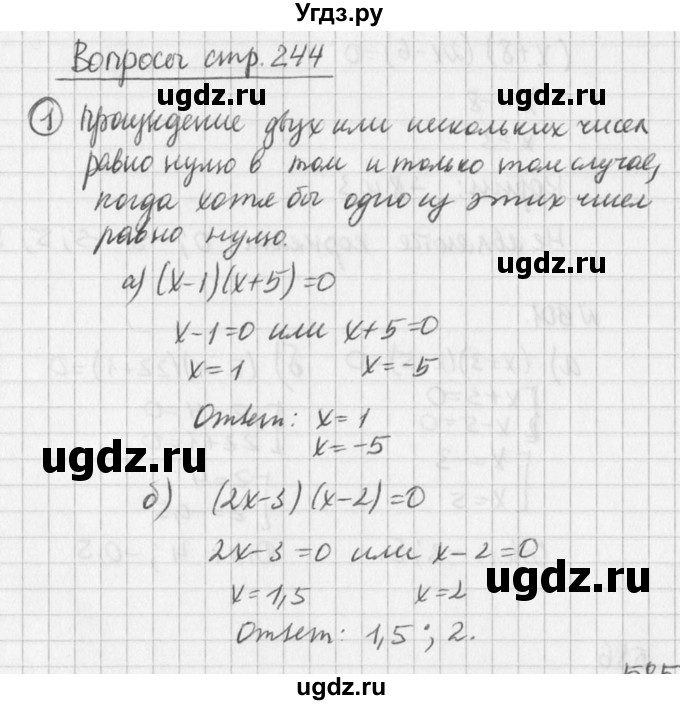 Угдз.ру
Вопросы стр. 244
ugdz.ru ugdz.ru
1 Произведение двух или нескольких чисел
равно нулю в том и только том случае,
когда хотя бы одно из этих чисел
равно нулю.
ugdz.ru
а) (x-1)(x+5)=0
x-1=0 или x+5=0
x=1 x=-5
Ответ: x=1
x=-5
ugdz.ru
б) (2x-3)(x-2)=0
2x-3=0 или x-2=0
x=1,5 x=2
ugdz.ru
Ответ: 1,5; 2.
ugdz.ru